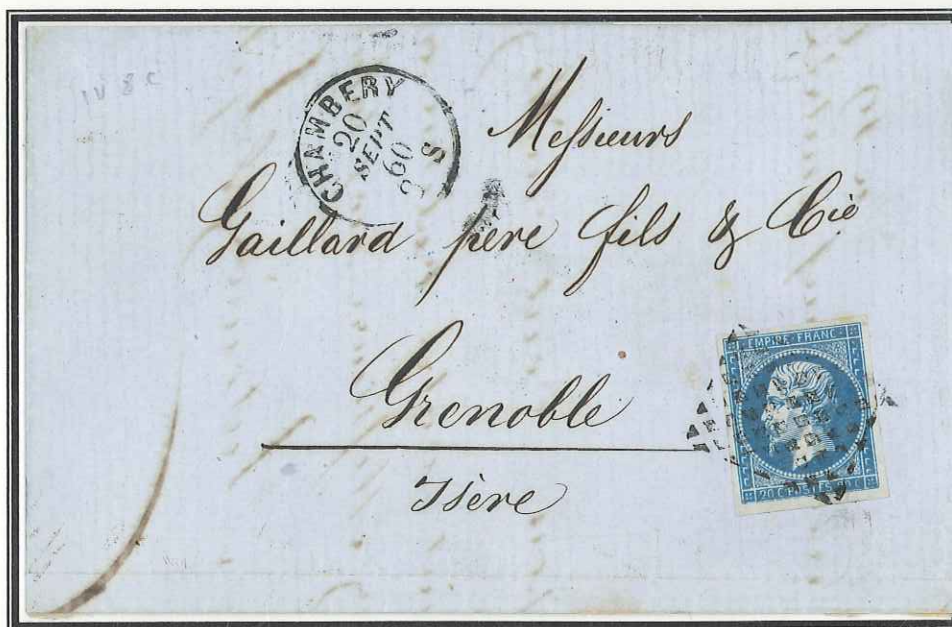 IV 8 C
CHAMBERY
20
SEPT
60
S
Messieurs
Gaillard père fils & Cie
Grenoble
Isère
EMPIRE FRANC
20 C POSTES C